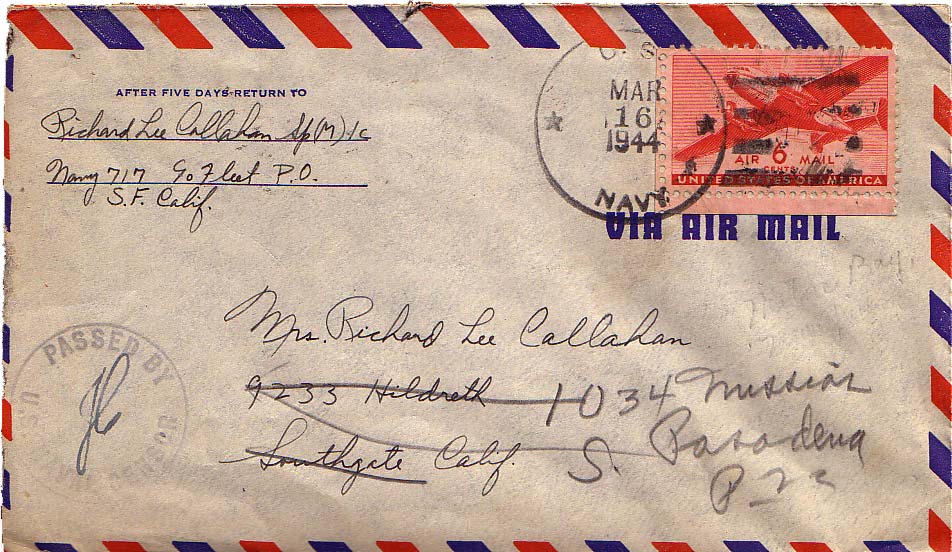 AFTER FIVE DAYS RETURN TO
Richard Lee Callahan Sp(M)1c
Navy 717 % Fleet P.O.
S.F. Calif.
U. S.
MAR
16
1944
NAVY
AIR 6 MAIL
CENTS
UNITED STATES OF AMERICA
VIA AIR MAIL
PASSED BY
Mrs. Richard Lee Callahan
9233 Hildreth 1034 Mission
Southgate Calif. S. Pasadena